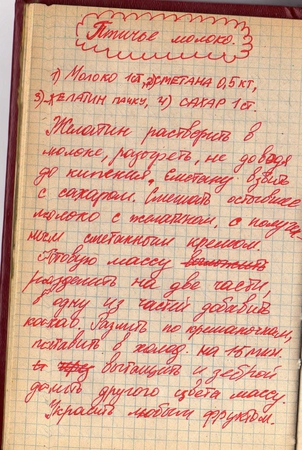 Птичье молоко.
1) Молоко 1 ст, 2) Сметана 0,5 кг,
3) Желатин пачку, 4) Сахар 1 ст.
Желатин растворить в
молоке, разогреть, не доводя
до кипения. Сметану взбить
с сахаром. Смешать остывшее
молоко с желатином, с получен
ным сметанным кремом.
Готовую массу
разделить на две части,
в одну из частей добавить
какао. Разлить по креманочкам,
поставить в холод. на 15 мин.
вытащить и зеброй
долить другого цвета массу.
Украсить любым фруктом.